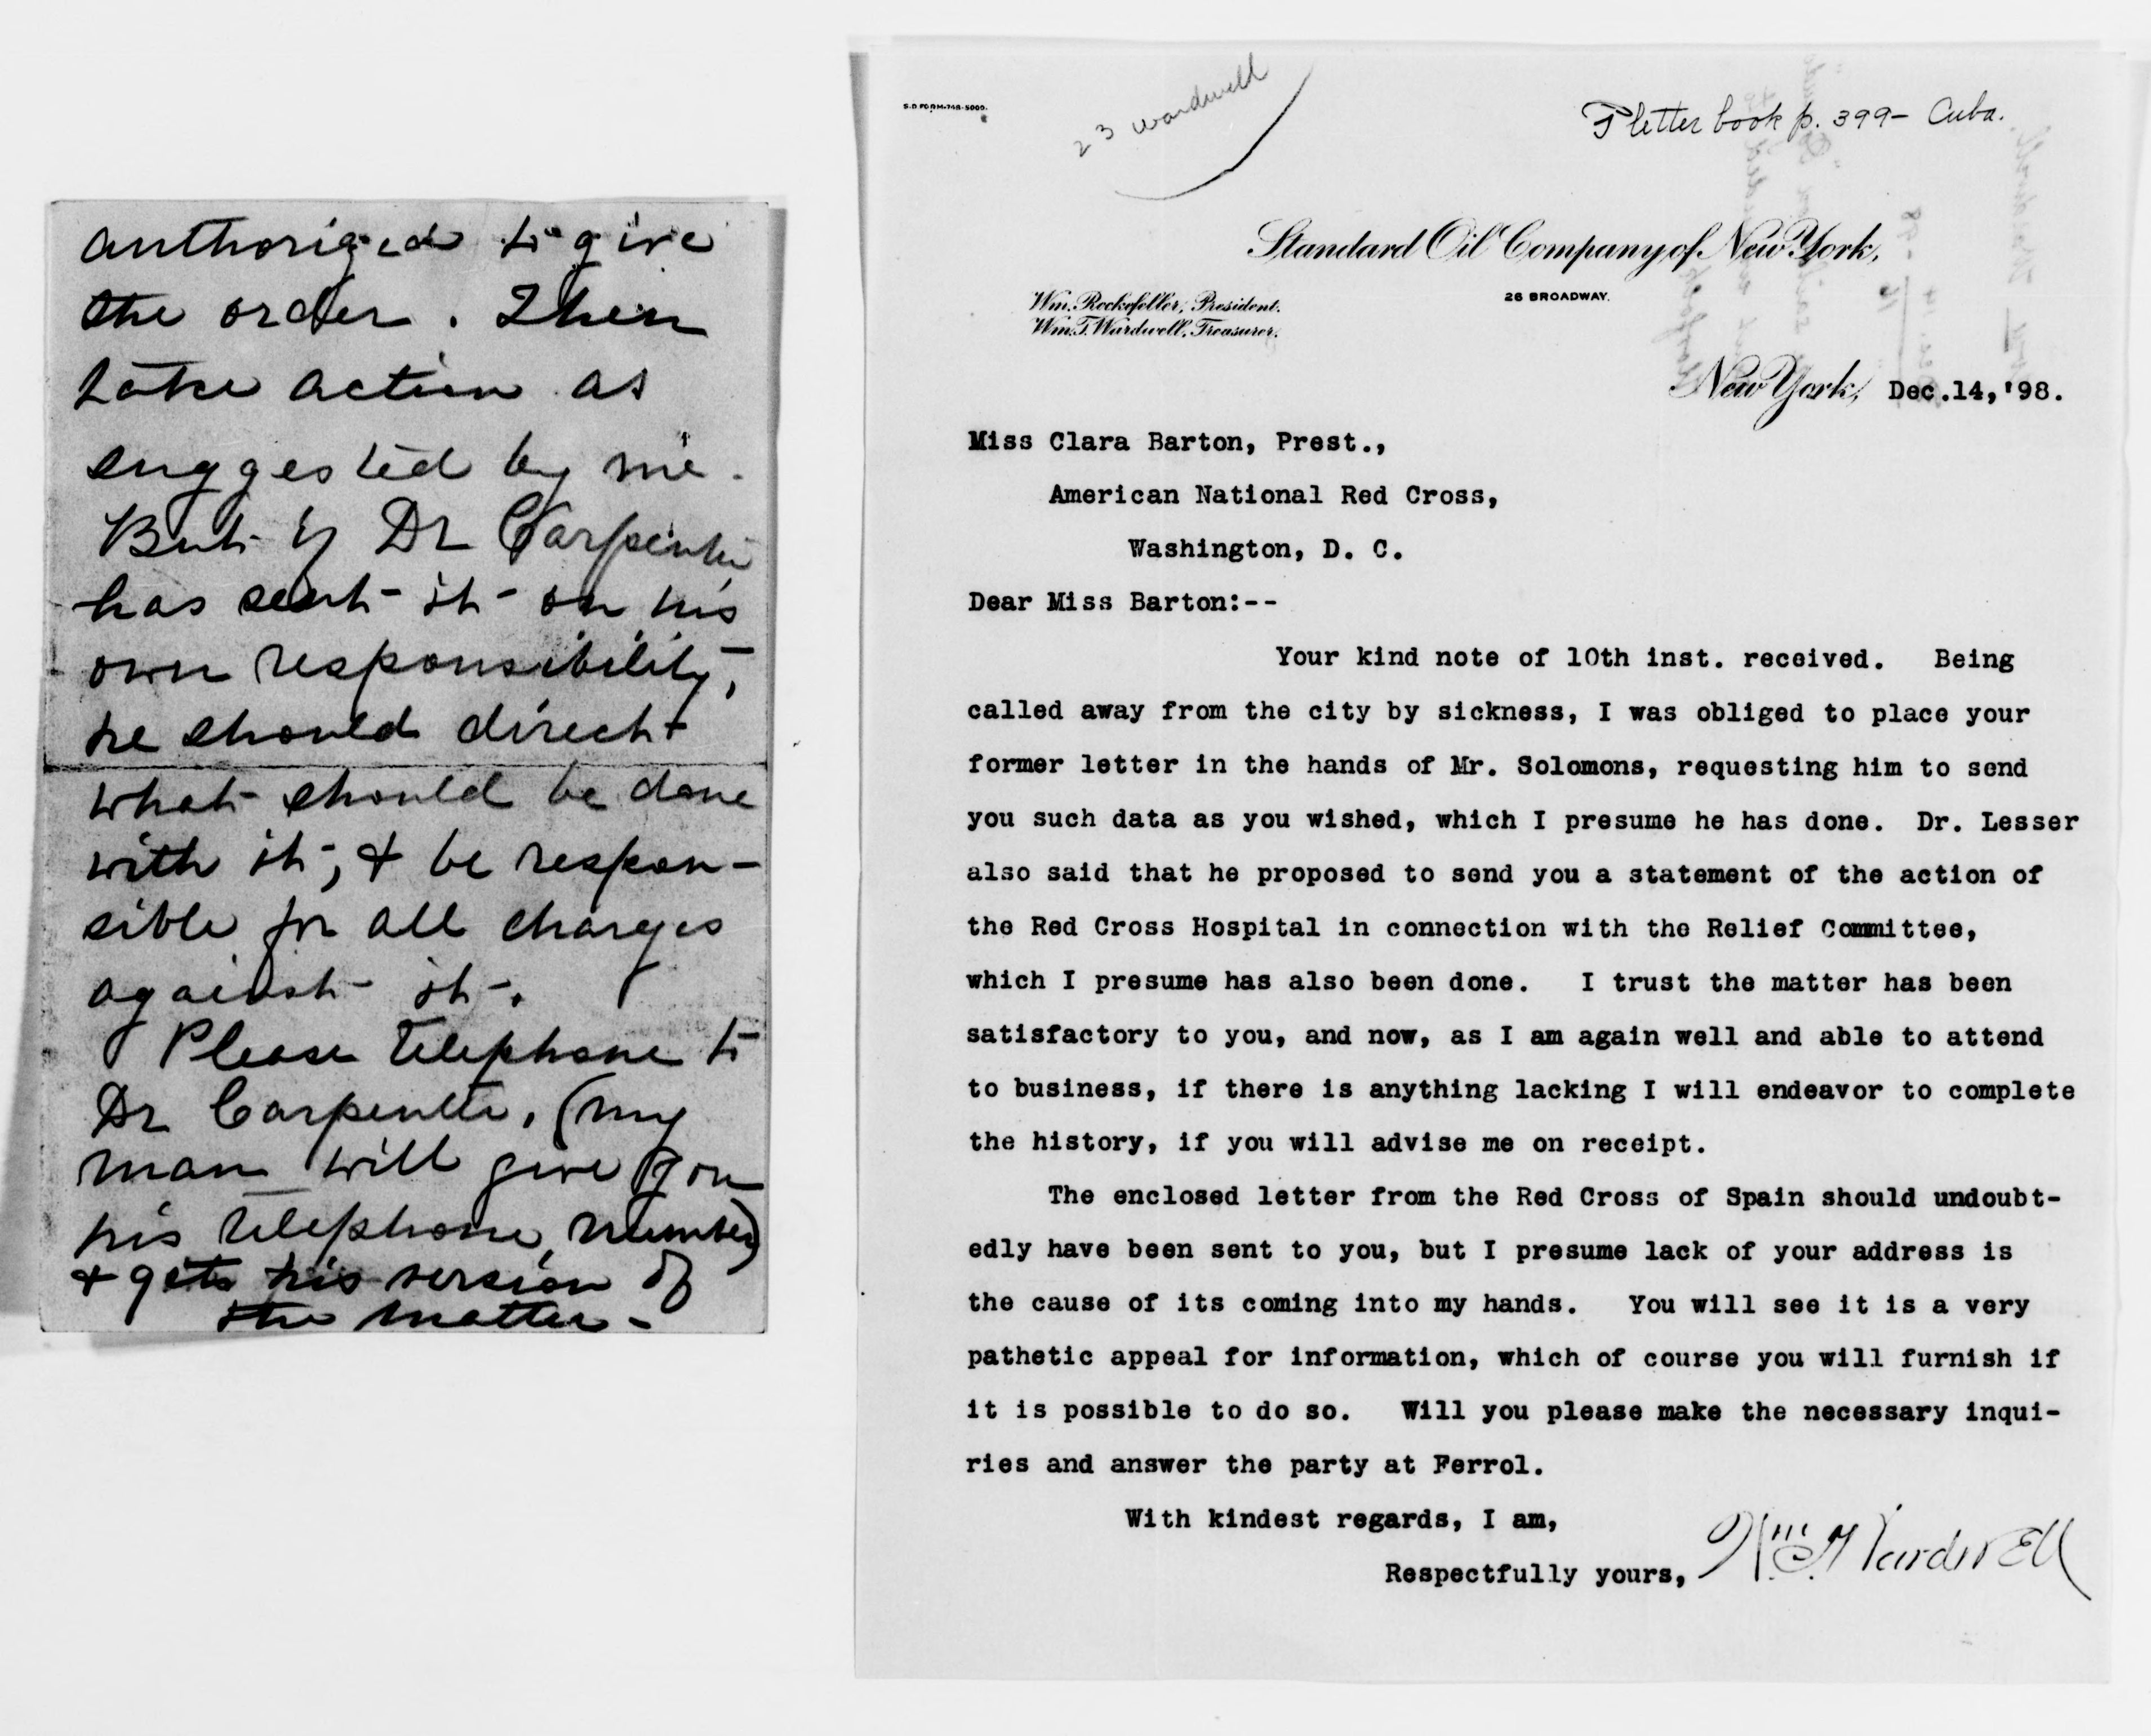 authorized to give
the order. Then
take action as
suggested by me.
But if Dr Carpenter
has sent it on his
own responsibility,
he should direct
what should be done
with it, & be respon-
sible for all charges
against it.
Please telephone to
Dr Carpenter, (my
man will give you
his telephone number)
& get his version of
the matter -
S.D FORM-748-5000.
23 Wardwell
letter book p. 399- Cuba.
Standard Oil Company of New York,
26 BROADWAY.
Wm. Rockefeller, President.
Wm. T. Wardwell, Treasurer.
New York, Dec.14,'98.
Miss Clara Barton, Prest.,
American National Red Cross,
Washington, D. C.
Dear Miss Barton:--
Your kind note of 10th inst. received. Being
called away from the city by sickness, I was obliged to place your
former letter in the hands of Mr. Solomons, requesting him to send
you such data as you wished, which I presume he has done. Dr. Lesser
also said that he proposed to send you a statement of the action of
the Red Cross Hospital in connection with the Relief Committee,
which I presume has also been done. I trust the matter has been
satisfactory to you, and now, as I am again well and able to attend
to business, if there is anything lacking I will endeavor to complete
the history, if you will advise me on receipt.
The enclosed letter from the Red Cross of Spain should undoubt-
edly have been sent to you, but I presume lack of your address is
the cause of its coming into my hands. You will see it is a very
pathetic appeal for information, which of course you will furnish if
it is possible to do so. Will you please make the necessary inqui-
ries and answer the party at Ferrol.
With kindest regards, I am,
Respectfully yours,
Wm. T. Wardwell